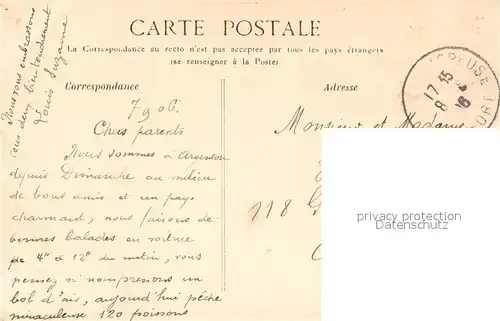 CARTE POSTALE
La Correspondance au recto n'est pas acceptée par tous les pays étrangers
(se renseigner à la Poste)
Correspondance
Adresse
Nous vous embrassons
tous deux bien tendrement
Louis Suzanne
CREUSE
17 35
8 16
7 9 06.
Chers parents
Nous sommes à Argenton
depuis Dimanche au milieu
de bons amis et en pays
charmant, nous faisons de
bonnes balades en voiture
de 4h à 12h du matin, vous
pensez si nous prenons un
bol d'air, aujourd'hui pêche
miraculeuse 120 poissons
Monsieur et Madame
118 G
privacy protection
Datenschutz